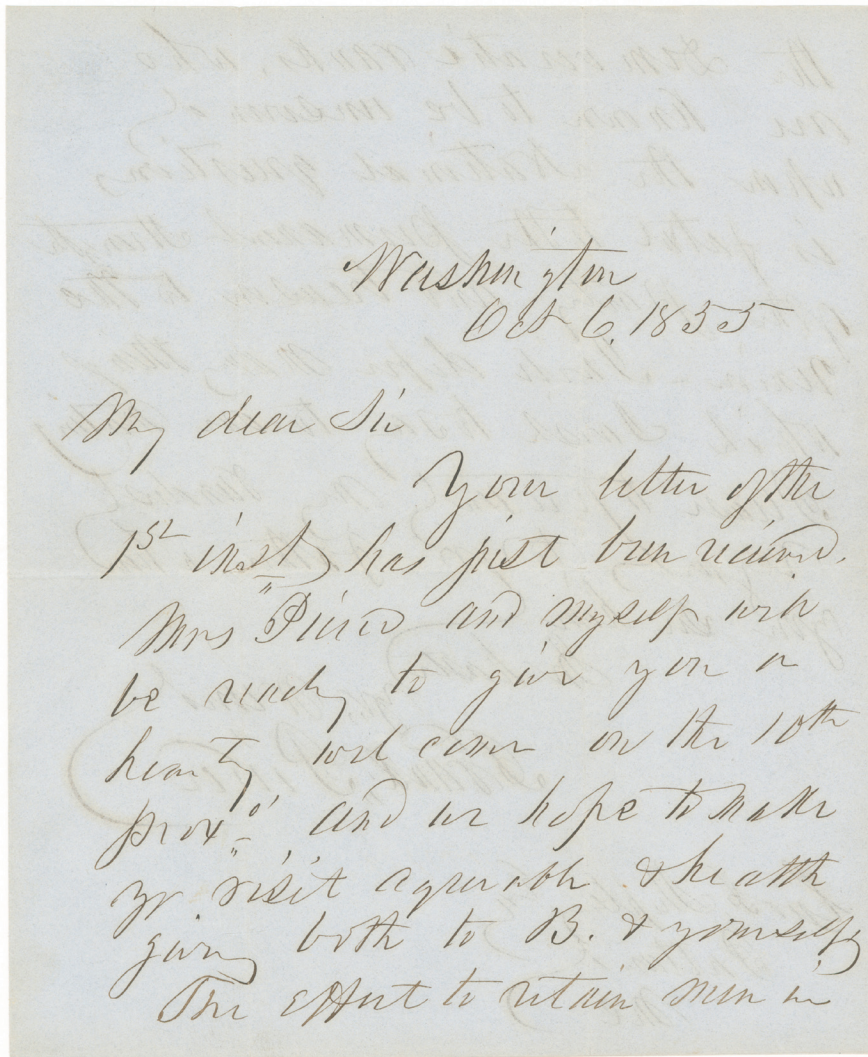 Washington
Oct 6. 1855
My dear Sir
Your letter of the
1st inst, has just been received.
Mrs Pierce and myself will
be ready to give you a
hearty welcome on the 10th
proxo, and we hope to make
yr visit agreeable & health
giving both to B. & yourself,
The effort to retain men in